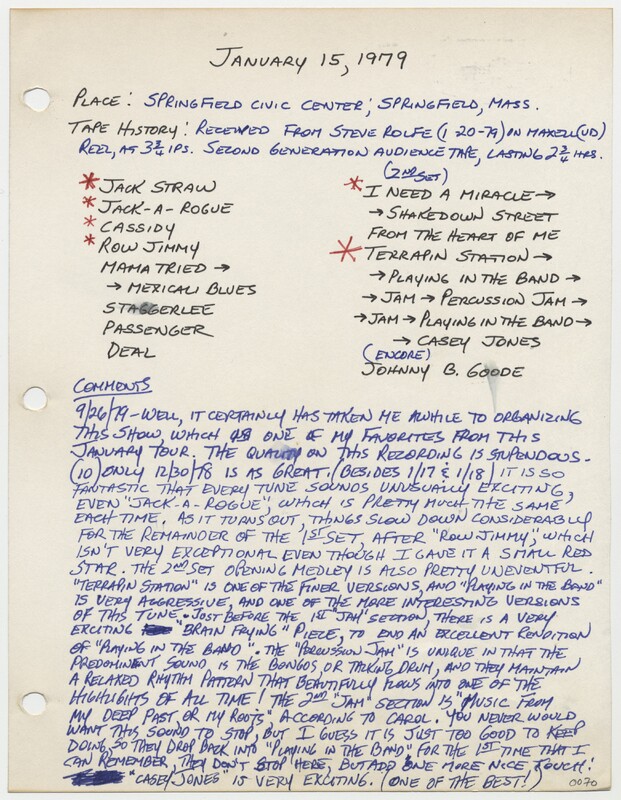 January 15, 1979
Place: Springfield Civic Center, Springfield, Mass.
Tape History: Received from Steve Rolfe (1-20-79) on Maxell (UD)
Reel, at 3 3/4 ips. Second generation audience tape, lasting 2 3/4 hrs.
* Jack Straw
* Jack-A-Rogue
* Cassidy
* Row Jimmy
Mama Tried →
→ Mexicali Blues
Staggerlee
Passenger
Deal
(2nd set)
* I Need A Miracle →
→ Shakedown Street
From The Heart Of Me
* Terrapin Station →
→ Playing In The Band →
→ Jam → Percussion Jam →
→ Jam → Playing In The Band →
→ Casey Jones
(Encore)
Johnny B. Goode
Comments
9/26/79 - Well, it certainly has taken me awhile to organizing
this show, which is one of my favorites from this
January tour. The quality on this recording is stupendous.
(10) Only 12/30/78 is as great! (Besides 1/17 & 1/18) It is so
fantastic that every tune sounds unusually exciting,
even "Jack-A-Rogue", which is pretty much the same
each time. As it turns out, things slow down considerably
for the remainder of the 1st set, after "Row Jimmy", which
isn't very exceptional even though I gave it a small red
star. The 2nd set opening medley is also pretty uneventful.
"Terrapin Station" is one of the finer versions, and "Playing in the Band"
is very aggressive, and one of the more interesting versions
of this tune. Just before the 1st "Jam" section, there is a very
exciting "brain frying" piece, to end an excellent rendition
of "Playing in the Band". The "Percussion Jam" is unique in that the
predominent sound is the bongos, or talking drum, and they maintain
a relaxed rhythm pattern that beautifully flows into one of the
highlights of all time! The 2nd "Jam" section is "music from
my deep past, or my roots" according to Carol. You never would
want this sound to stop, but I guess it is just too good to keep
doing, so they drop back into "Playing in the Band" for the 1st time that I
can remember, they don't stop here, but add one more nice touch!
"Casey Jones" is very exciting. (One of the best!)
0070